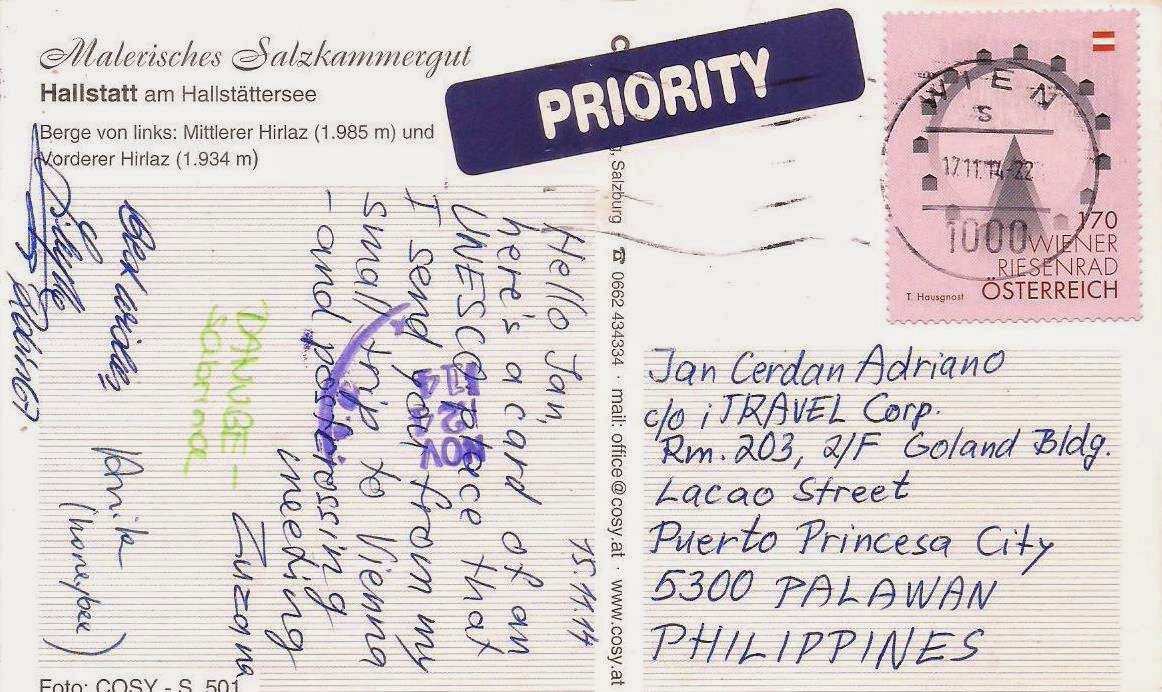 Malerisches Salzkammergut
Hallstatt am Hallstättersee
Berge von links: Mittlerer Hirlaz (1.985 m) und
Vorderer Hirlaz (1.934 m)
PRIORITY
WIEN
S
17.11.14-22
1000
170
WIENER
RIESENRAD
ÖSTERREICH
T. Hausgnost
15.11.14
Hello Jan,
here's a card of an
UNESCO place that
I send you from my
small trip to Vienna
- and postcrossing
meeting
Zuzana
DANUBE -
Sabrina
Best wishes
Anita
(honeybee)
NOV
24
14
Salzburg ☎ 0662 434334 · mail: office@cosy.at · www.cosy.at
Jan Cerdan Adriano
c/o iTRAVEL Corp.
Rm. 203, 2/F Goland Bldg.
Lacao Street
Puerto Princesa City
5300 PALAWAN
PHILIPPINES
Foto: COSY - S 501